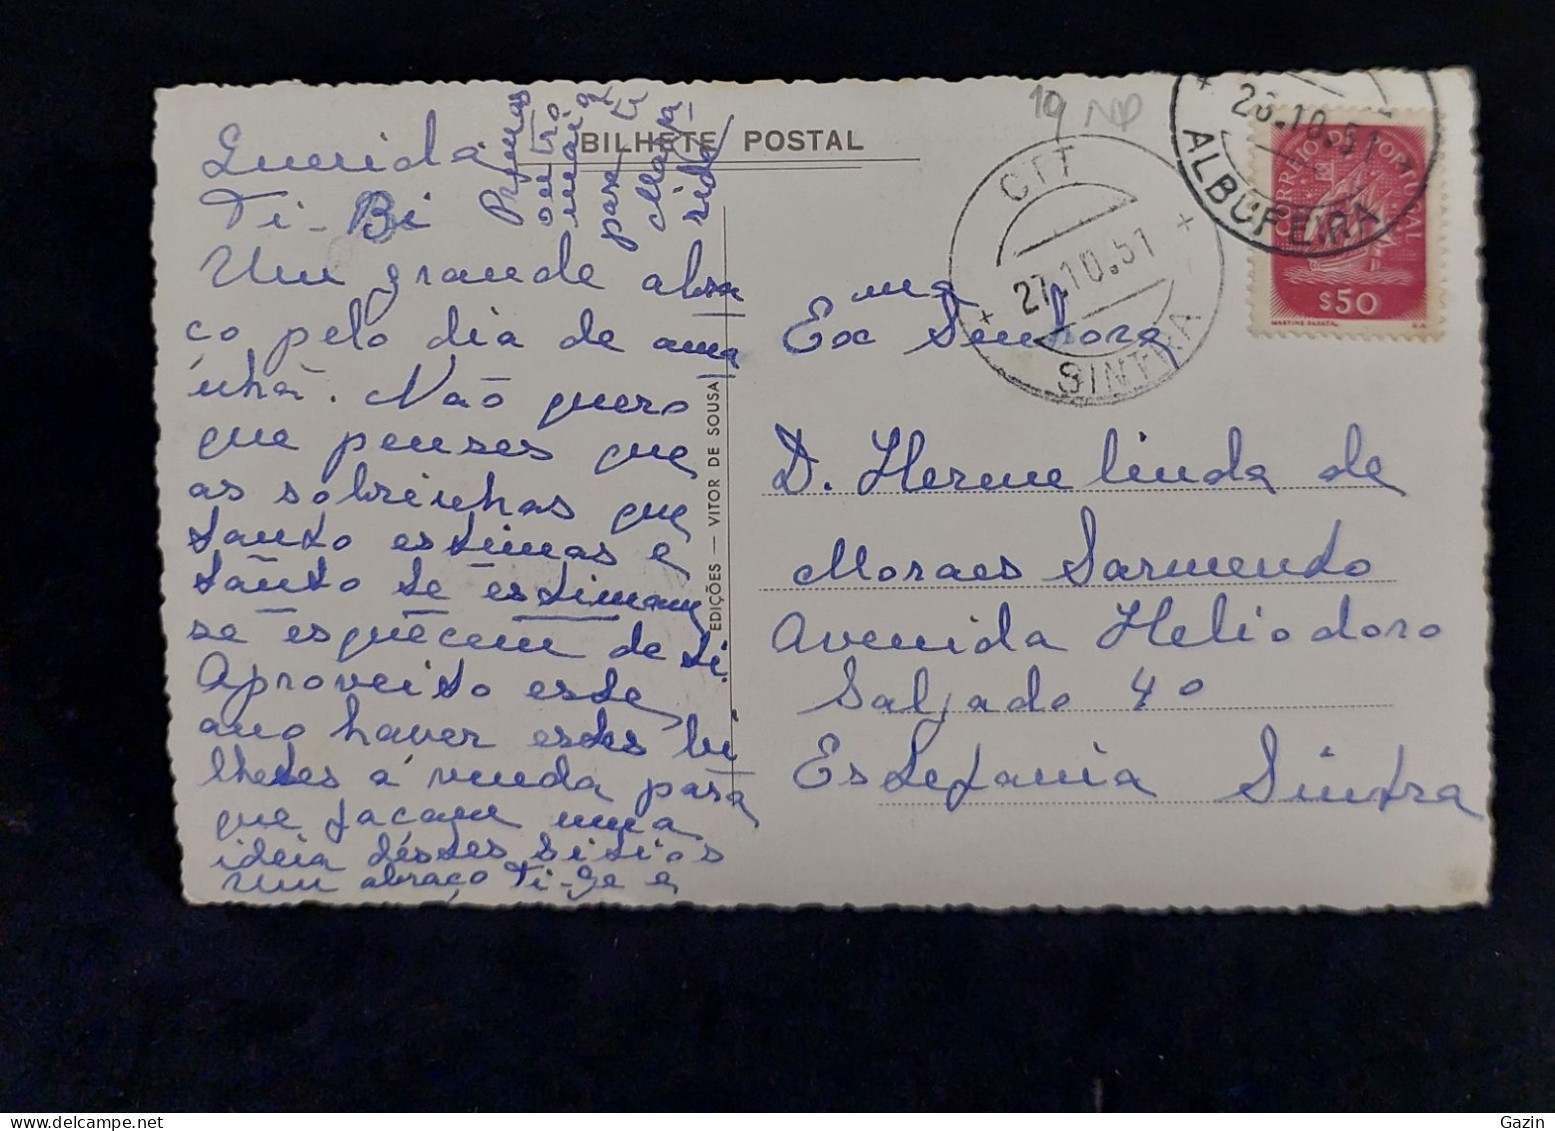 BILHETE POSTAL
Querida
Ti-Bi
Um grande abra
ço pelo dia de ama
nhã. Não quero
que penses que
as sobrinhas que
tanto estimas e
tanto te estimam
se esquecem de ti.
Aproveito este
ano haver estes bi
lhetes á venda para
que façam uma
ideia destes sitios
Um abraço Ti-Ge e
outro
para ti
EDIÇÕES — VITOR DE SOUSA
19 ND
CTT
27.10.51
SINTRA
26.10.51
ALBUFEIRA
CORREIO PORTUGAL
$50
MARTINS BARATA
Exma Senhora
D. Hermelinda de
Moraes Sarmento
Avenida Heliodoro
Salgado 4º
Estefania Sintra
Gazin